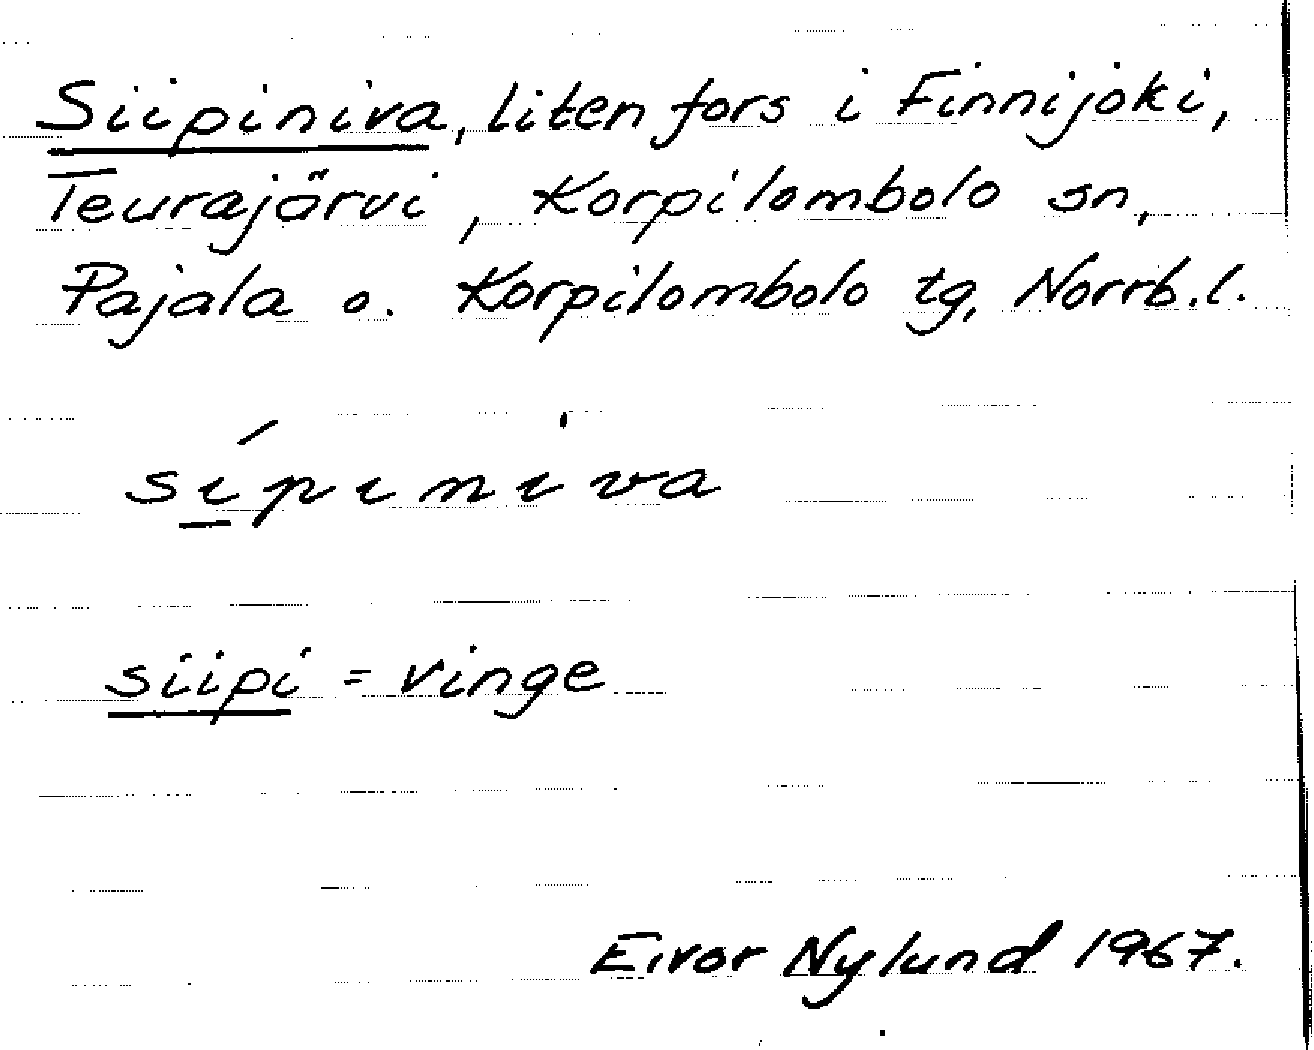 Siipiniva, liten fors i Finnijoki,
Teurajärvi, Korpilombolo sn,
Pajala o. Korpilombolo tg, Norrb.l.
sí̱piniva
siipi = vinge
Eivor Nylund 1967.